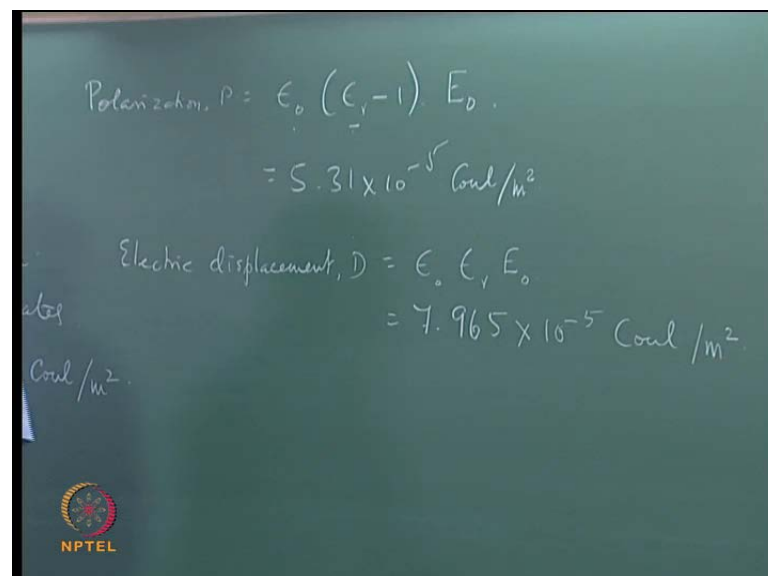 Polarization, P = ε₀ (εᵣ - 1). E₀.
= 5.31 x 10⁻⁵ Coul/m²
Electric displacement, D = ε₀ εᵣ E₀
= 7.965 x 10⁻⁵ Coul/m²
ates
Coul/m².
NPTEL